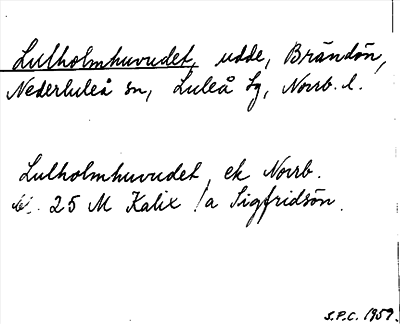 Lulholmhuvudet, udde, Brändön,
Nederluleå sn, Luleå tg, Norrb. l.
Lulholmhuvudet, ek Norrb.
bl. 25 M Kalix /a Sigfridsön.
S.P.C. 1959.